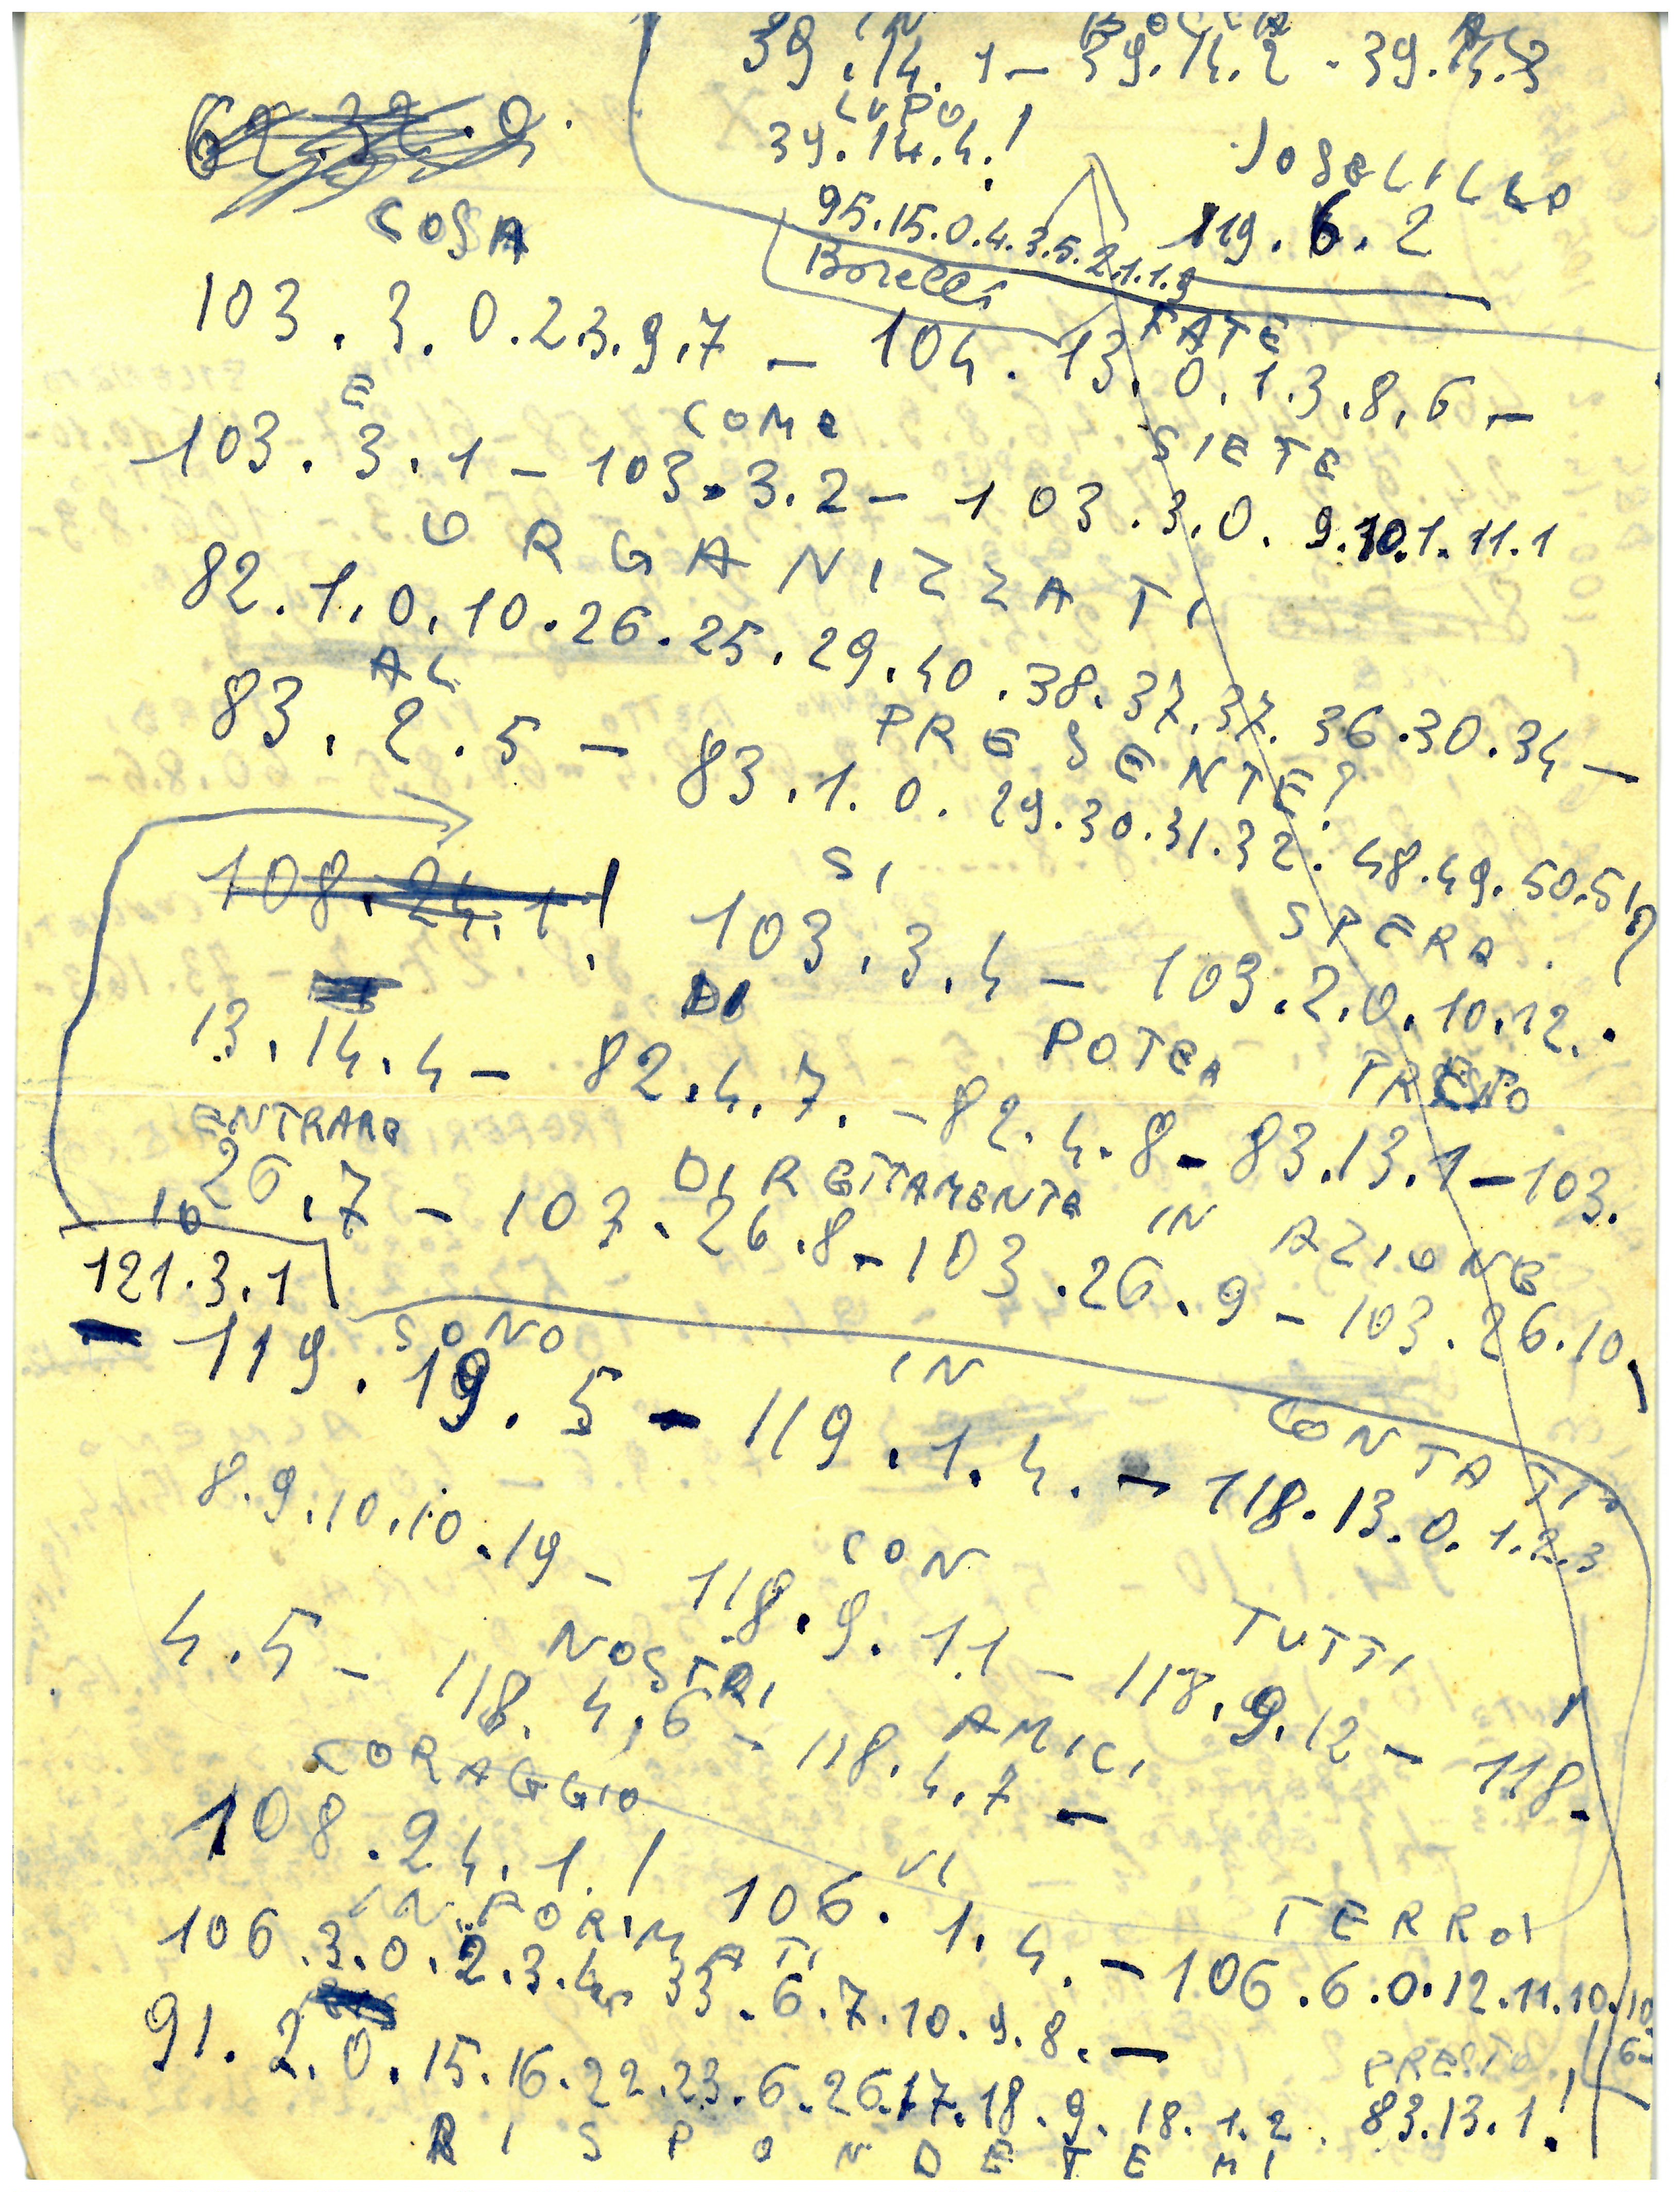 IN BOCCA AL
39.14.1 - 39.14.2 - 39.14.3
LUPO
39.14.4.!
JOSELILLO
95.15.0.4.3.5.2.1.1.9
119.6.2
Borelli
COSA
FATE
103.3.0.2.3.9.7 - 104.13.0.1.3.8.6 -
E COME SIETE
103.3.1 - 103.3.2 - 103.3.0.9.10.1.11.1
ORGANIZZATI
82.1.0.10.26.25.29.40.38.37.37.36.30.34 -
AL PRESENTE?
83.2.5 - 83.1.0.29.30.31.32.48.49.50.51?
SI SPERA.
108.24.1! 103.3.4 - 103.2.0.10.12..
DI POTER PRESTO
13.14.4 - 82.4.7. - 82.4.8 - 83.13.1 - 103.
ENTRARE DIRETTAMENTE IN AZIONE
26.7 - 103.26.8 - 103.26.9 - 103.26.10.
IO
121.3.1
SONO IN CONTATTO
- 119.19.5 - 119.1.4. - 118.13.0.1.2.3
8.9.10.10.19 - 118.9.11 - 118.9.12 - 118.
CON TUTTI I
4.5 - 118.4.6 - 118.4.7 -
NOSTRI AMICI
CORAGGIO VI TERROI
108.24.1.! 106.1.4. - 106.6.0.12.11.10.10.
INFORMATI
106.3.0.2.3.4. 33.6.7.10.9.8. -
PRESTO!
91.2.0.15.16.22.23.6.26.17.18.9.18.1.2. 83.13.1!
RISPONDETEMI